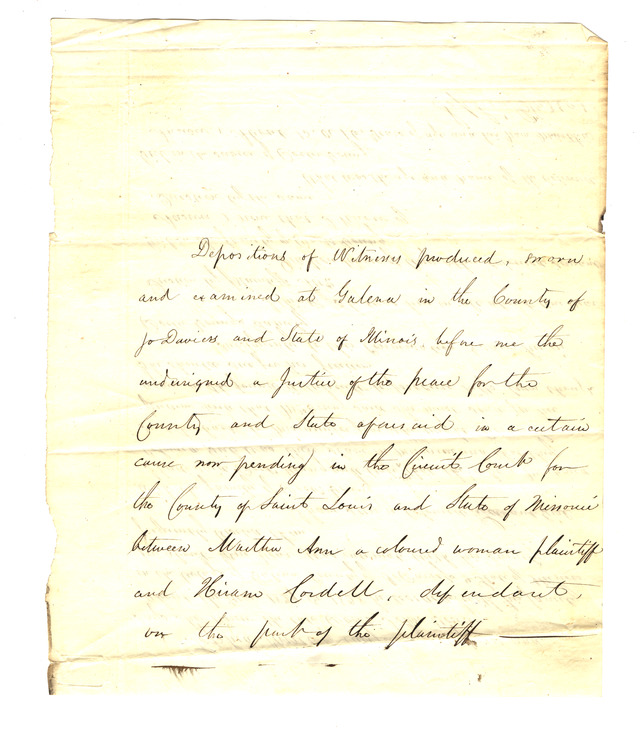 Depositions of Witnesses produced, sworn
and examined at Galena in the County of
Jo Daviess and State of Illinois, before me the
undersigned a Justice of the peace for the
County and State aforesaid in a certain
cause now pending in the Circuit Court for
the County of Saint Louis and State of Missouri
between Martha Ann a coloured woman plaintiff
and Hiram Cordell, defendant,
on the part of the plaintiff